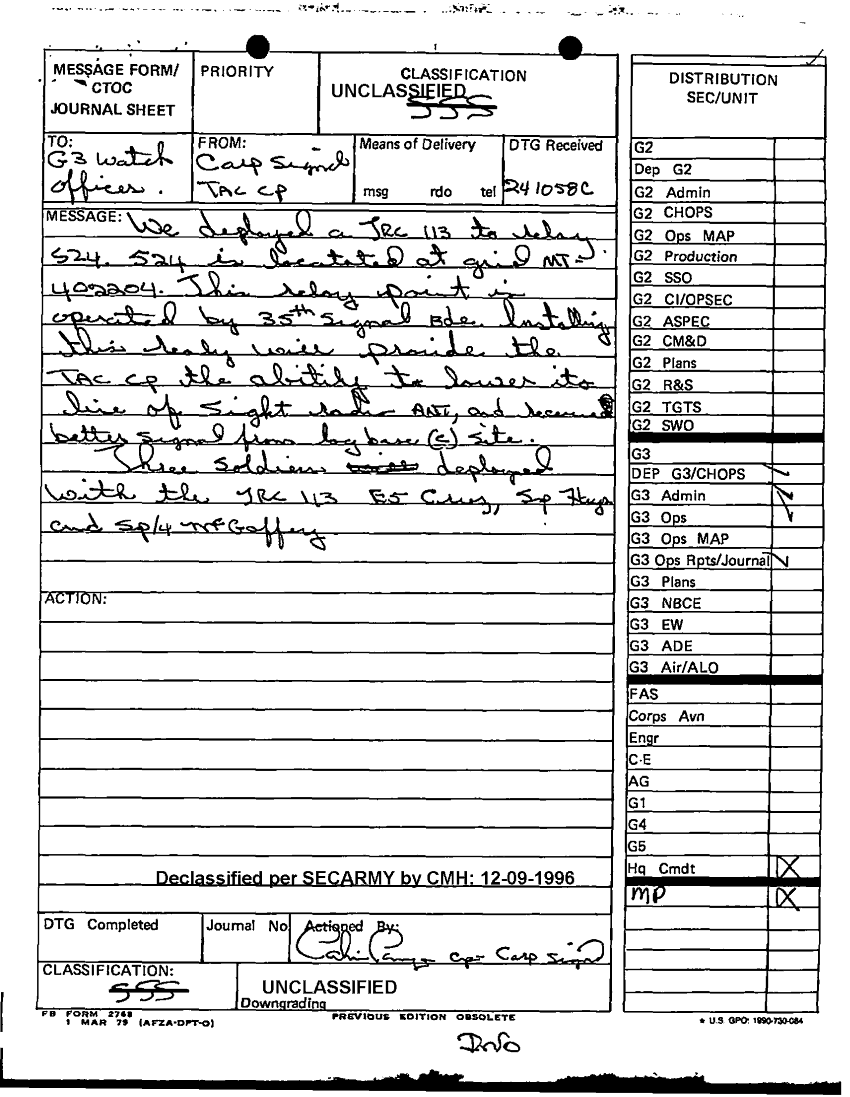 MESSAGE FORM/
CTOC
JOURNAL SHEET
PRIORITY
CLASSIFICATION
UNCLASSIFIED
SSS
TO:
G3 Watch
Offices.
FROM:
Corp Signal
TAC CP
Means of Delivery
msg rdo tel
DTG Received
241058C
MESSAGE: We deployed a TRC 113 to relay
S24. S24 is locatated at grid MT-
402204. This relay point is
operated by 35th Signal Bde. Installing
this realy will provide the
TAC CP the ability to lower its
line of sight radio ANT, and receive
better signal from log base (C) site.
Three Soldiers deployed
with the TRC 113 E5 Cruz, Sp Hays
and Sp/4 McGaffey
ACTION:
Declassified per SECARMY by CMH: 12-09-1996
DTG Completed
Journal No
Actioned By:
Cpt Corp Signal
CLASSIFICATION:
SSS
UNCLASSIFIED
Downgrading
FB FORM 2768
1 MAR 79 (AFZA-DPT-O)
PREVIOUS EDITION OBSOLETE
Info
DISTRIBUTION
SEC/UNIT
G2
Dep G2
G2 Admin
G2 CHOPS
G2 Ops MAP
G2 Production
G2 SSO
G2 CI/OPSEC
G2 ASPEC
G2 CM&D
G2 Plans
G2 R&S
G2 TGTS
G2 SWO
G3
DEP G3/CHOPS
G3 Admin
G3 Ops
G3 Ops MAP
G3 Ops Rpts/Journal
G3 Plans
G3 NBCE
G3 EW
G3 ADE
G3 Air/ALO
FAS
Corps Avn
Engr
C-E
AG
G1
G4
G5
Hq Cmdt
MP
* U.S. GPO: 1990-730-084